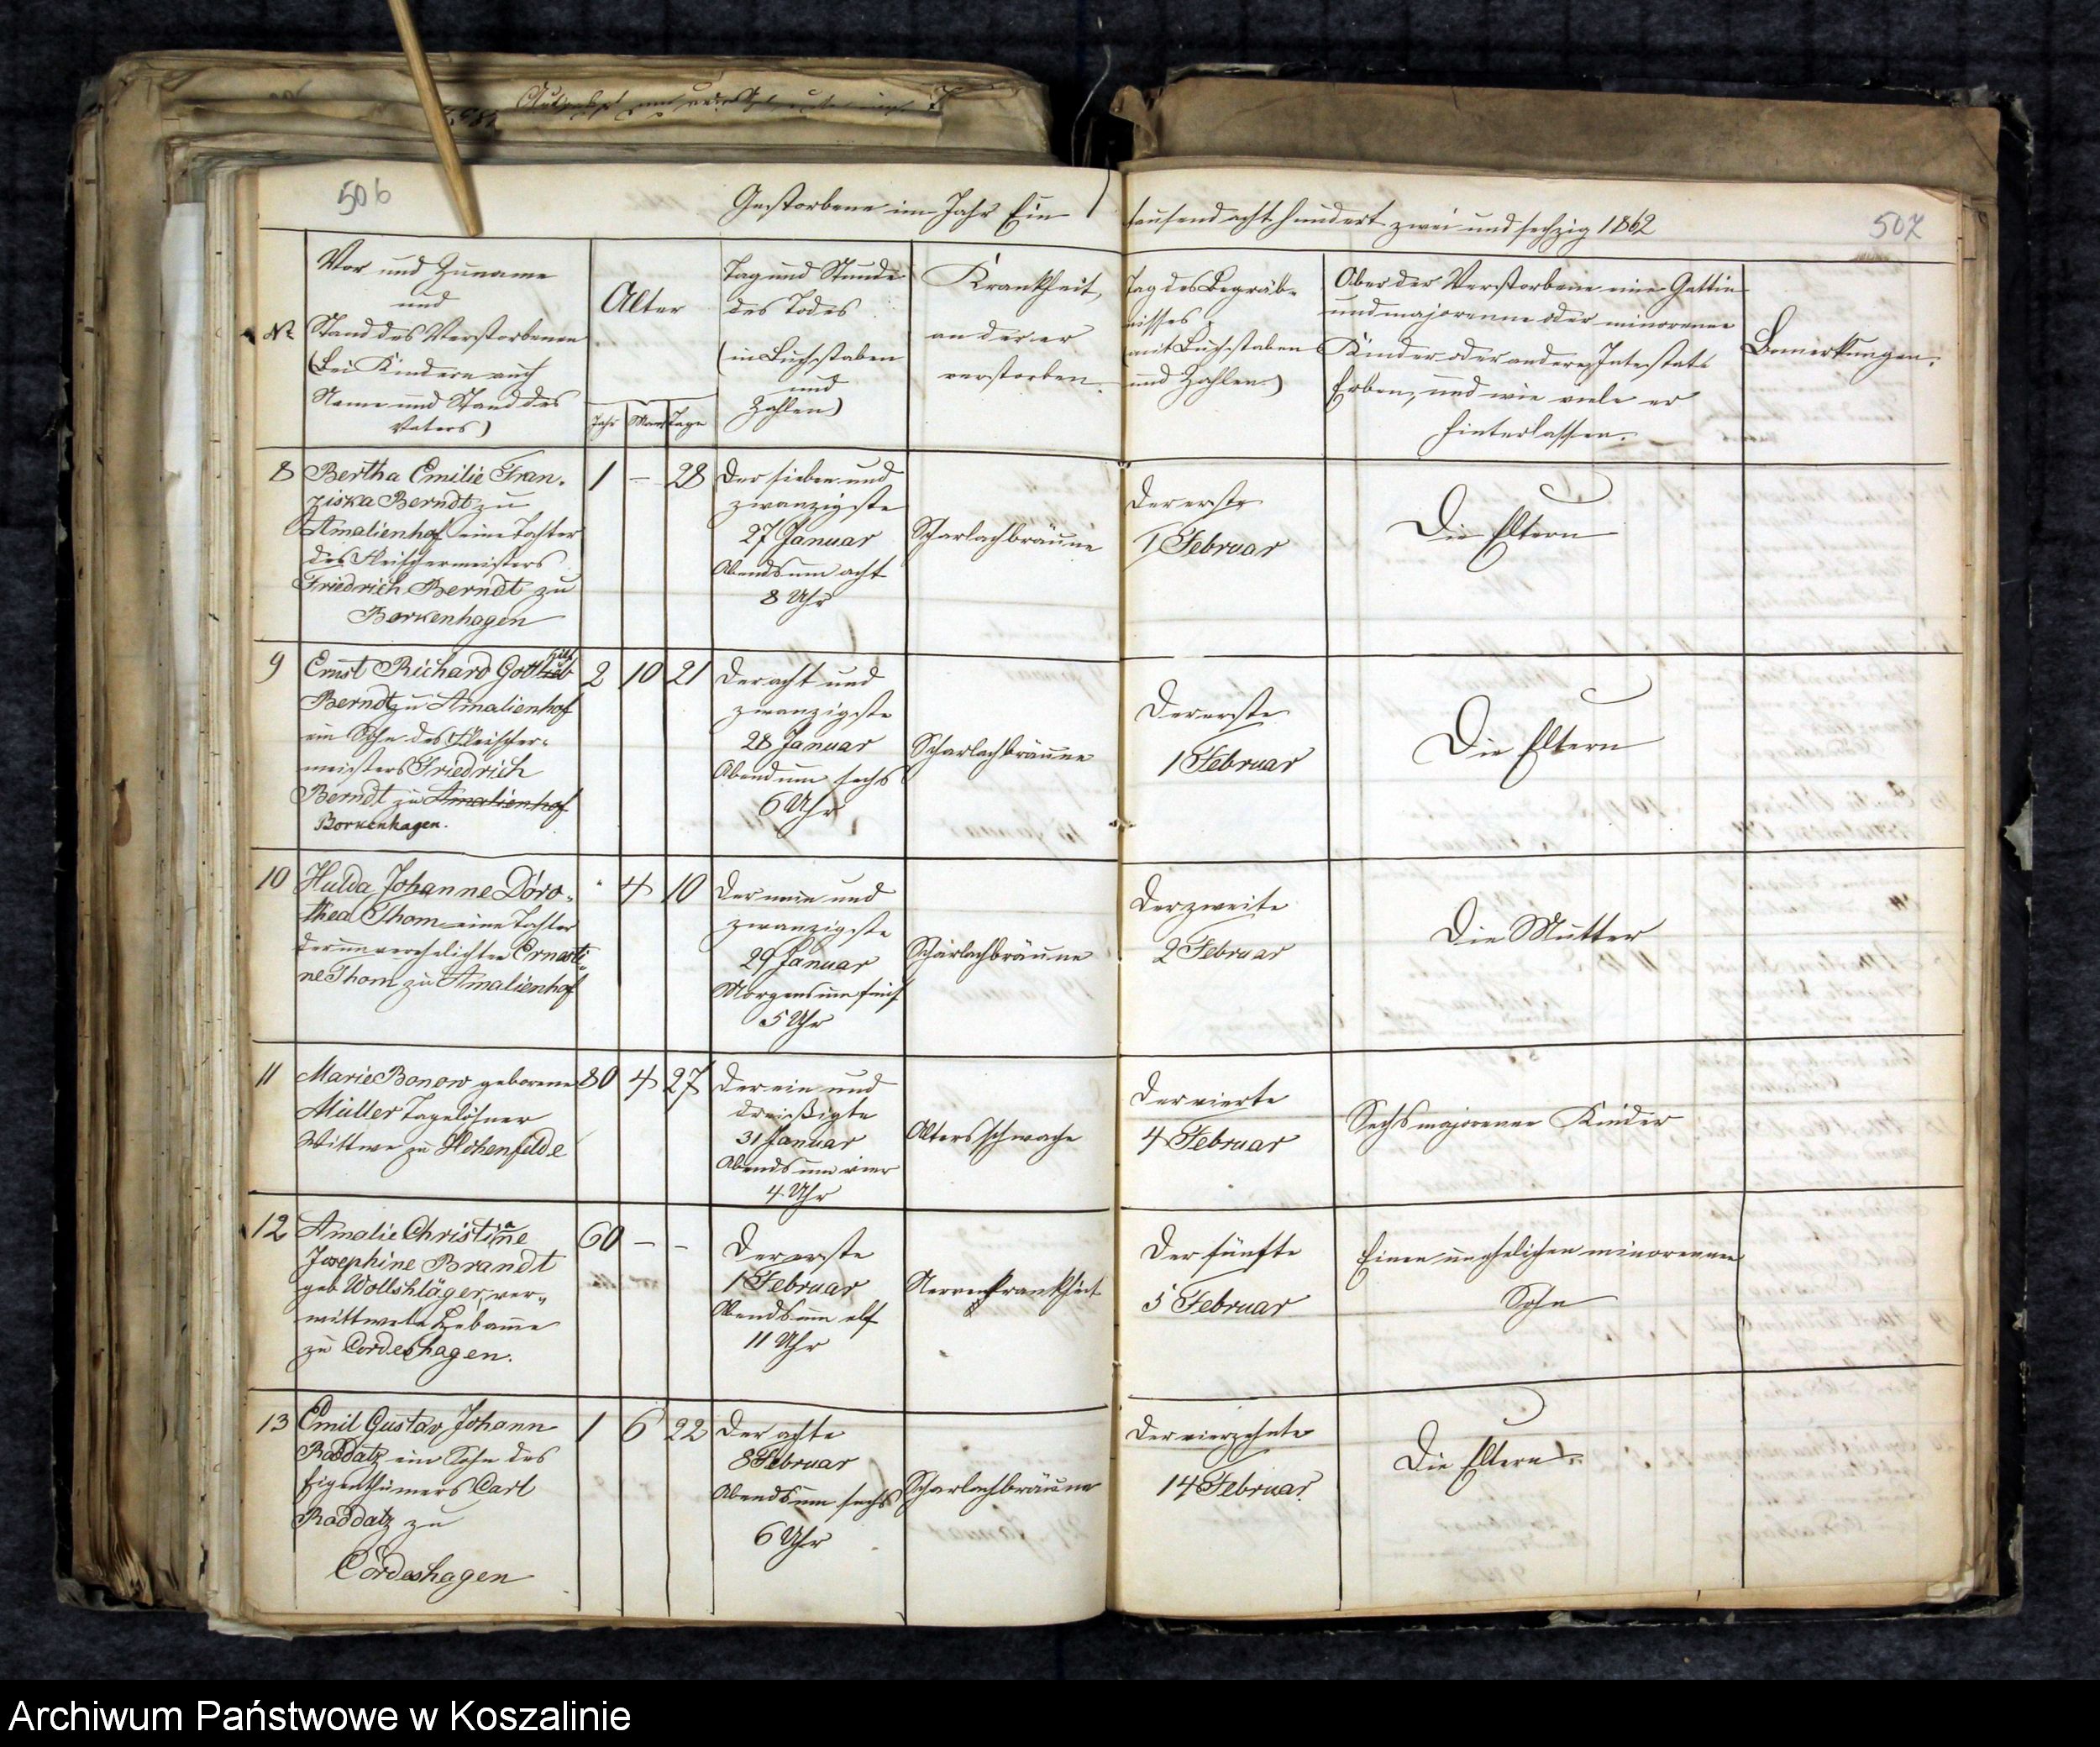 506
507
Gestorbene im Jahr Ein
tausend acht hundert zwei und sechzig 1862
No
Vor und Zuname
und
Stand des Verstorbenen
(bei Kindern auch
Name und Stand des
Vaters)
Alter
Jahr
Mon
Tage
Tag und Stunde
des Todes
(in Buchstaben
und
Zahlen)
Krankheit,
an der er
verstorben.
Tag des Begräb-
nisses
mit Buchstaben
und Zahlen)
Ob er der Verstorbene eine Gattin
und majorenne oder minorenne
Kinder oder andere Intestat-
Erben, und wie viele er
hinterlassen.
Bemerkungen.
8
Bertha Emilie Fran-
ziska Berndt zu
Amalienhof eine Tochter
des Fleischermeisters
Friedrich Berndt zu
Borkenhagen
1
–
28
Der sieben und
zwanzigste
27 Januar
Abends um acht
8 Uhr
Scharlachbräune
Der erste
1 Februar
Die Eltern
9
Ernst Richard Gottlieb
Berndt zu Amalienhof
ein Sohn des Fleischer-
meisters Friedrich
Berndt zu Amalienhof
Borkenhagen.
2
10
21
Der acht und
zwanzigste
28 Januar
Abend um sechs
6 Uhr
Scharlachbräune
Der erste
1 Februar
Die Eltern
10
Hulda Johanne Doro-
thea Thom eine Tochter
der unverehelichten Ernesti-
ne Thom zu Amalienhof
"
4
10
Der neun und
zwanzigste
29 Januar
Morgens um fünf
5 Uhr
Scharlachbräune
Der zweite
2 Februar
Die Mutter
11
Marie Bonow geborene
Müller Tagelöhner
Wittwe zu Hohenfelde
80
4
27
Der ein und
dreißigte
31 Januar
Abends um vier
4 Uhr
Altersschwache
Der vierte
4 Februar
Sechs majorenne Kinder
12
Amalie Christiane
Josephine Brandt
geb Wollschläger, ver-
wittwete Hebamme
zu Cordeshagen.
60
–
–
Der erste
1 Februar
Abends um elf
11 Uhr
Nervenkrankheit
Der fünfte
5 Februar
Einen unehelichen minorennen
Sohn
13
Emil Gustav Johann
Raddatz ein Sohn des
Eigenthümers Carl
Raddatz zu
Cordeshagen
1
6
22
Der achte
8 Februar
Abends um sechs
6 Uhr
Scharlachbräune
Der vierzehnte
14 Februar
Die Eltern
Archiwum Państwowe w Koszalinie